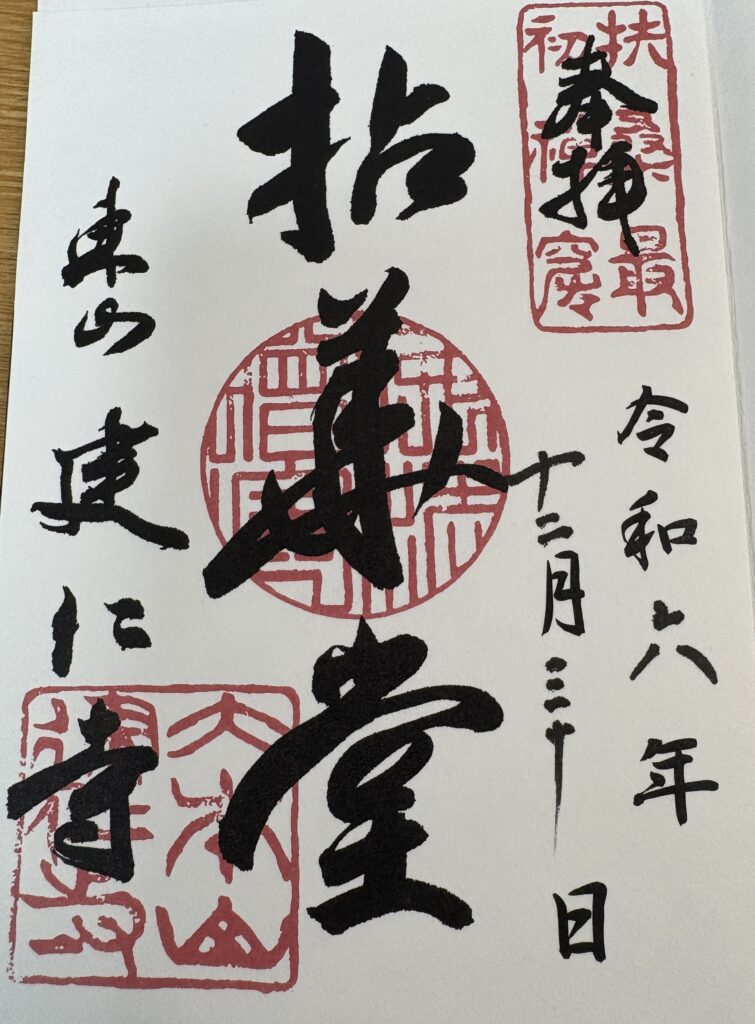 扶桑最
初禪窟
奉拝
令和六年
十二月三十日
拈華堂
東山 建仁寺
大本山
建仁寺